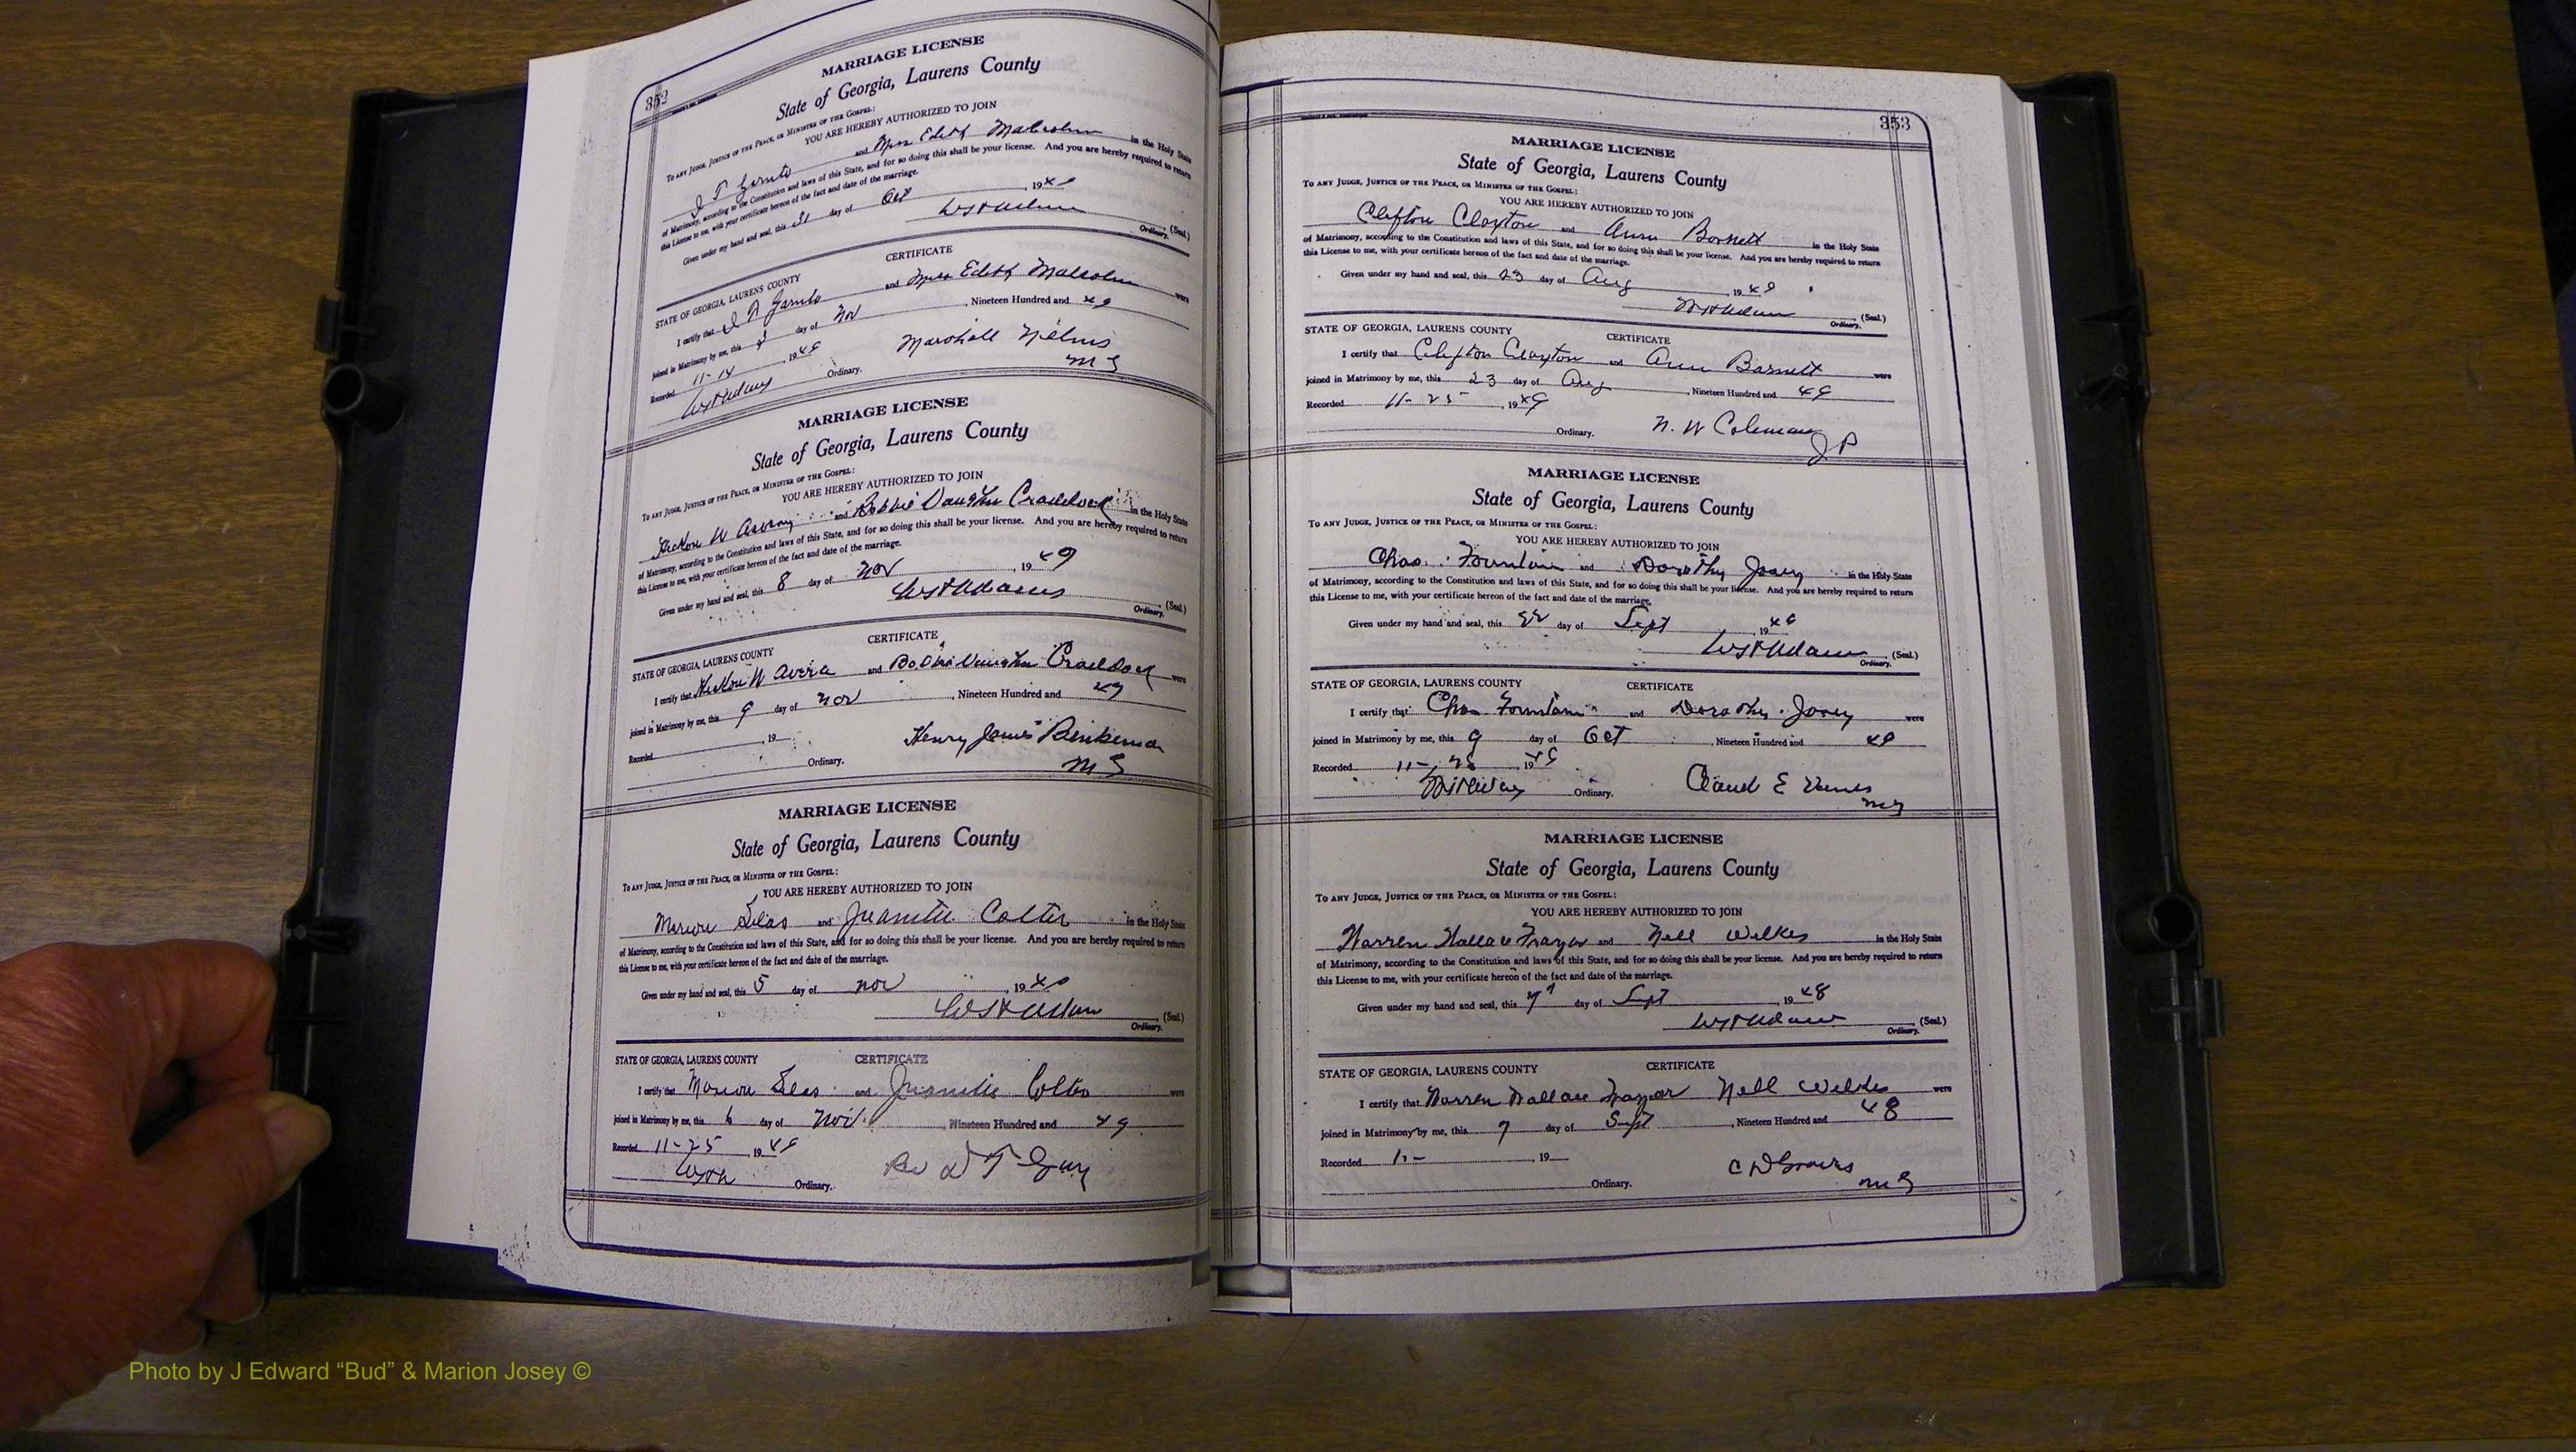 352
MARRIAGE LICENSE
State of Georgia, Laurens County
To ANY JUDGE, JUSTICE OF THE PEACE, OR MINISTER OF THE GOSPEL:
YOU ARE HEREBY AUTHORIZED TO JOIN
and Miss Edith Malcolm in the Holy State
of Matrimony, according to the Constitution and laws of this State, and for so doing this shall be your license. And you are hereby required to return
this License to me, with your certificate hereon of the fact and date of the marriage.
Given under my hand and seal, this 31 day of Oct, 1949
(Seal.)
Ordinary.
CERTIFICATE
STATE OF GEORGIA, LAURENS COUNTY
I certify that and Miss Edith Malcolm were
joined in Matrimony by me, this day of Nov, Nineteen Hundred and 49
Recorded 11-14, 1949
Marshall Nelms
Ordinary.
M G
MARRIAGE LICENSE
State of Georgia, Laurens County
To ANY JUDGE, JUSTICE OF THE PEACE, OR MINISTER OF THE GOSPEL:
YOU ARE HEREBY AUTHORIZED TO JOIN
W and Bobbie Vaughn Craddock in the Holy State
of Matrimony, according to the Constitution and laws of this State, and for so doing this shall be your license. And you are hereby required to return
this License to me, with your certificate hereon of the fact and date of the marriage.
Given under my hand and seal, this 8 day of Nov, 1949
Adams (Seal.)
Ordinary.
CERTIFICATE
STATE OF GEORGIA, LAURENS COUNTY
I certify that W Avera and Bobbie Vaughn Craddock were
joined in Matrimony by me, this 9 day of Nov, Nineteen Hundred and 49
Recorded , 19
Henry James
Ordinary.
M G
MARRIAGE LICENSE
State of Georgia, Laurens County
To ANY JUDGE, JUSTICE OF THE PEACE, OR MINISTER OF THE GOSPEL:
YOU ARE HEREBY AUTHORIZED TO JOIN
Marion and Juanita in the Holy State
of Matrimony, according to the Constitution and laws of this State, and for so doing this shall be your license. And you are hereby required to return
this License to me, with your certificate hereon of the fact and date of the marriage.
Given under my hand and seal, this 5 day of Nov, 1949
(Seal.)
Ordinary.
STATE OF GEORGIA, LAURENS COUNTY CERTIFICATE
I certify that Marion and were
joined in Matrimony by me, this 6 day of Nov., Nineteen Hundred and 49
Recorded 11-25, 1949
Rev D T
Ordinary.
353
MARRIAGE LICENSE
State of Georgia, Laurens County
To ANY JUDGE, JUSTICE OF THE PEACE, OR MINISTER OF THE GOSPEL:
YOU ARE HEREBY AUTHORIZED TO JOIN
Clifton Claxton and Ann Barnett in the Holy State
of Matrimony, according to the Constitution and laws of this State, and for so doing this shall be your license. And you are hereby required to return
this License to me, with your certificate hereon of the fact and date of the marriage.
Given under my hand and seal, this 23 day of Aug, 1949
(Seal.)
Ordinary.
STATE OF GEORGIA, LAURENS COUNTY CERTIFICATE
I certify that Clifton Claxton and Ann Barnett were
joined in Matrimony by me, this 23 day of Aug, Nineteen Hundred and 49
Recorded 11-25, 1949
Ordinary. N. W Coleman
J P
MARRIAGE LICENSE
State of Georgia, Laurens County
To ANY JUDGE, JUSTICE OF THE PEACE, OR MINISTER OF THE GOSPEL:
YOU ARE HEREBY AUTHORIZED TO JOIN
Chas. Fountain and Dorothy Josey in the Holy State
of Matrimony, according to the Constitution and laws of this State, and for so doing this shall be your license. And you are hereby required to return
this License to me, with your certificate hereon of the fact and date of the marriage.
Given under my hand and seal, this day of Sept, 1949
(Seal.)
Ordinary.
STATE OF GEORGIA, LAURENS COUNTY CERTIFICATE
I certify that Chas Fountain and Dorothy Josey were
joined in Matrimony by me, this 9 day of Oct, Nineteen Hundred and 49
Recorded 11-, 1949
Ordinary. Claud E
M G
MARRIAGE LICENSE
State of Georgia, Laurens County
To ANY JUDGE, JUSTICE OF THE PEACE, OR MINISTER OF THE GOSPEL:
YOU ARE HEREBY AUTHORIZED TO JOIN
Warren Wallace and Nell Wilkes in the Holy State
of Matrimony, according to the Constitution and laws of this State, and for so doing this shall be your license. And you are hereby required to return
this License to me, with your certificate hereon of the fact and date of the marriage.
Given under my hand and seal, this 7 day of Sept, 1948
(Seal.)
Ordinary.
STATE OF GEORGIA, LAURENS COUNTY CERTIFICATE
I certify that Warren Wallace Nell Wilkes were
joined in Matrimony by me, this 7 day of Sept, Nineteen Hundred and 48
Recorded , 19
C D
Ordinary. M G
Photo by J Edward “Bud” & Marion Josey ©